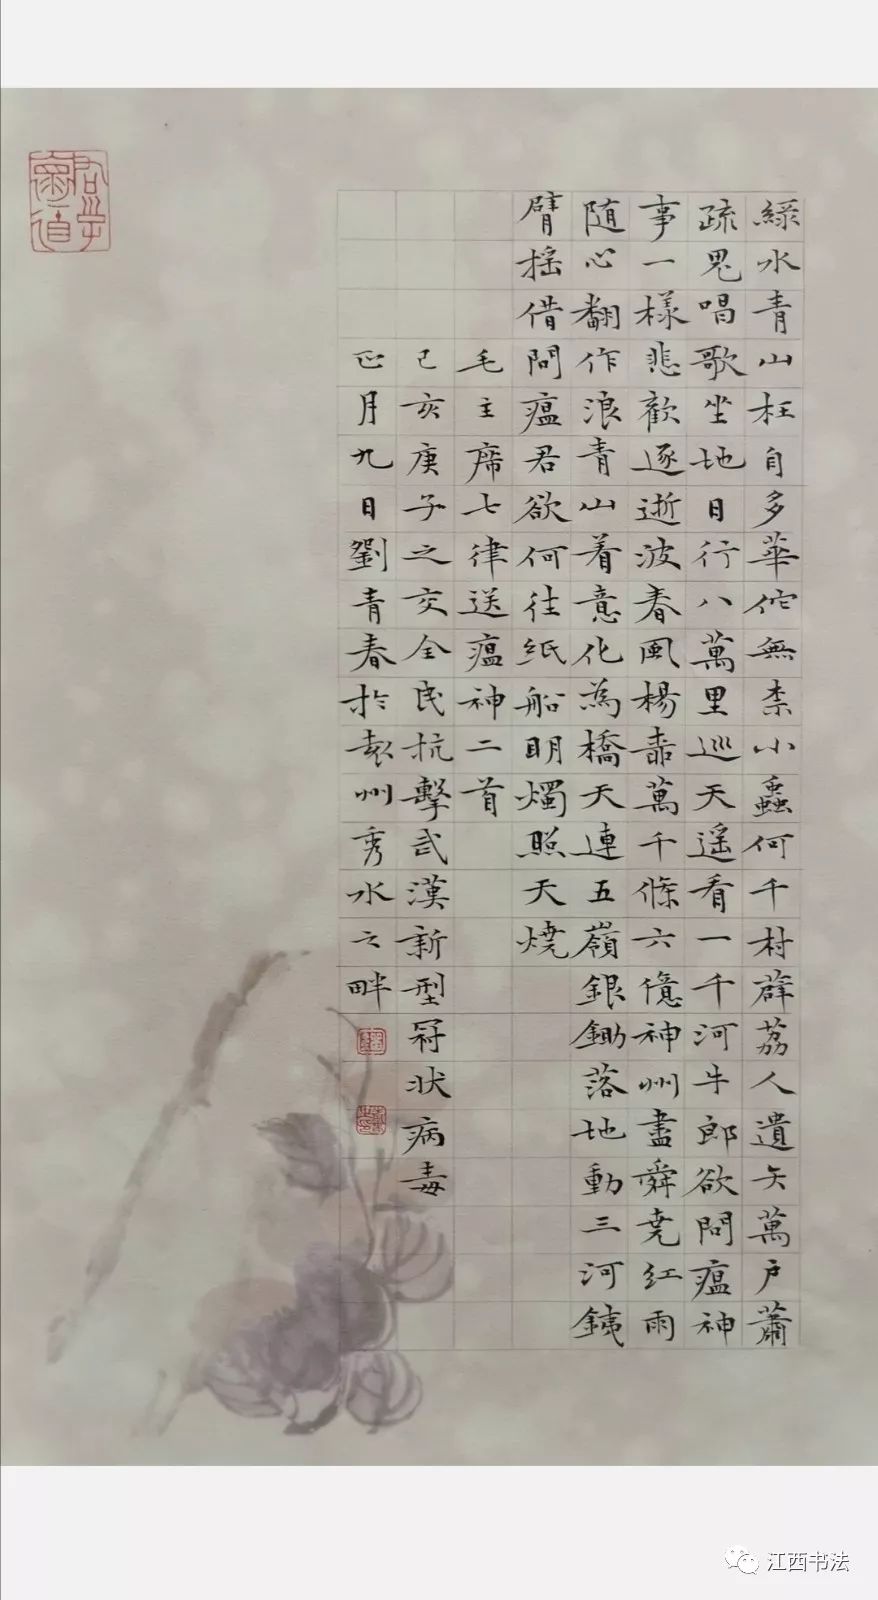 綠水青山枉自多華佗無柰小蟲何千村薜荔人遺矢萬戶蕭
疏鬼唱歌坐地日行八萬里巡天遥看一千河牛郎欲問瘟神
事一樣悲歡逐逝波春風楊桺萬千條六億神州盡舜堯紅雨
随心翻作浪青山着意化為橋天連五嶺銀鋤落地動三河銕
臂摇借問瘟君欲何往紙船明燭照天燒
毛主席七律送瘟神二首
己亥庚子之交全民抗擊武漢新型冠状病毒
正月九日劉青春於袁州秀水之畔
江西书法